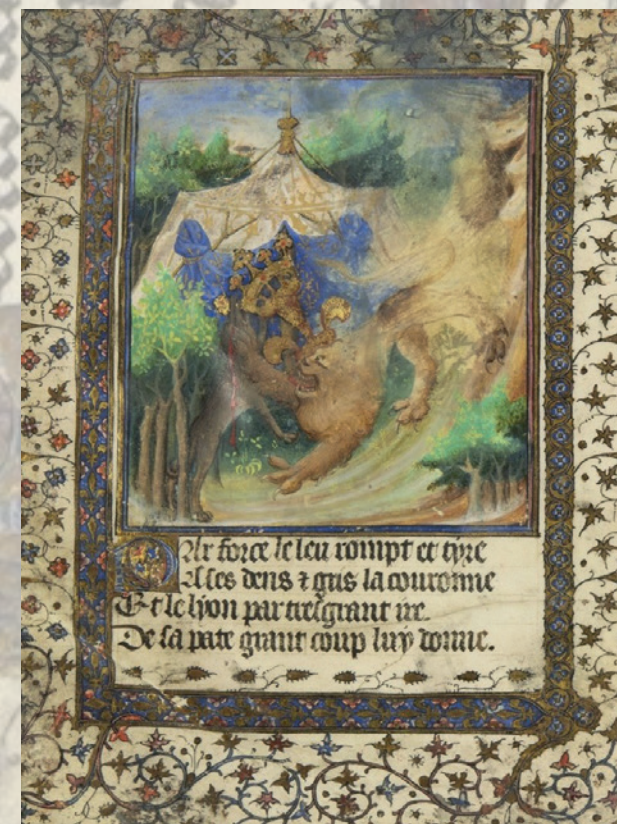 Par force le leu rompt et tyre
A ses dens & gris la couronne
Et le lyon par tresgrant ire
De sa pate grant coup luy donne.